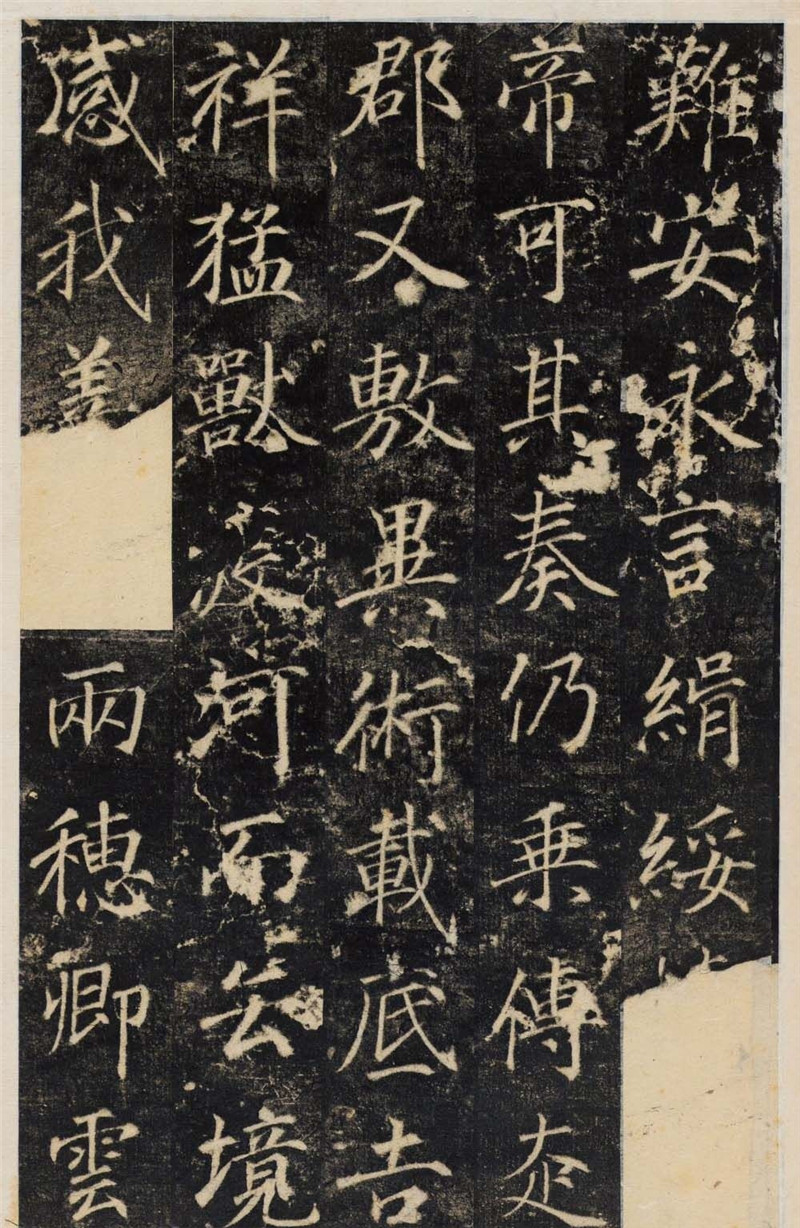 難安永言緝綏
帝可其奏仍乗傳赱
郡又敷異術載底吉
祥猛獸渡河而去境
感我善
兩穗卿雲